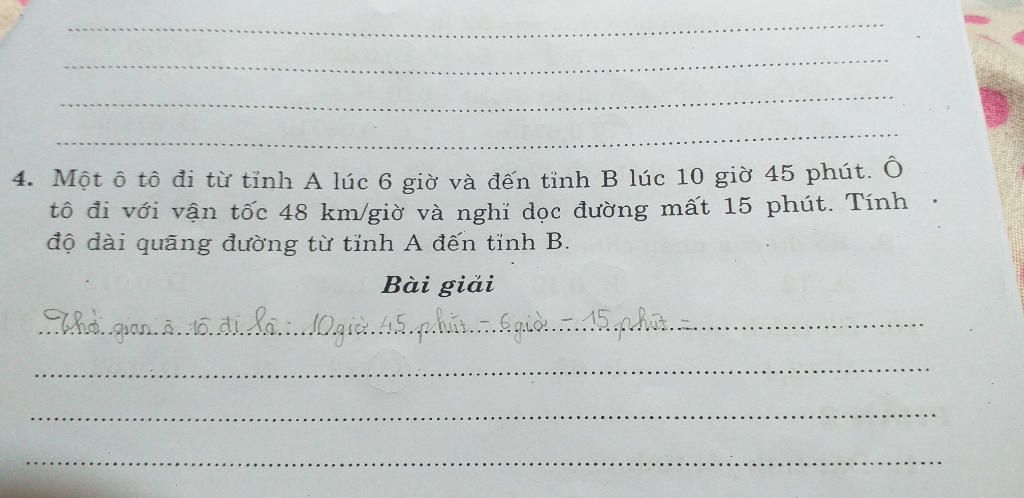 4. Một ô tô đi từ tỉnh A lúc 6 giờ và đến tỉnh B lúc 10 giờ 45 phút. Ô
tô đi với vận tốc 48 km/giờ và nghỉ dọc đường mất 15 phút. Tính
độ dài quãng đường từ tỉnh A đến tỉnh B.
Bài giải
gian ô tô đi là: 10 giờ 45 phút - 6 giờ - 15 phút =